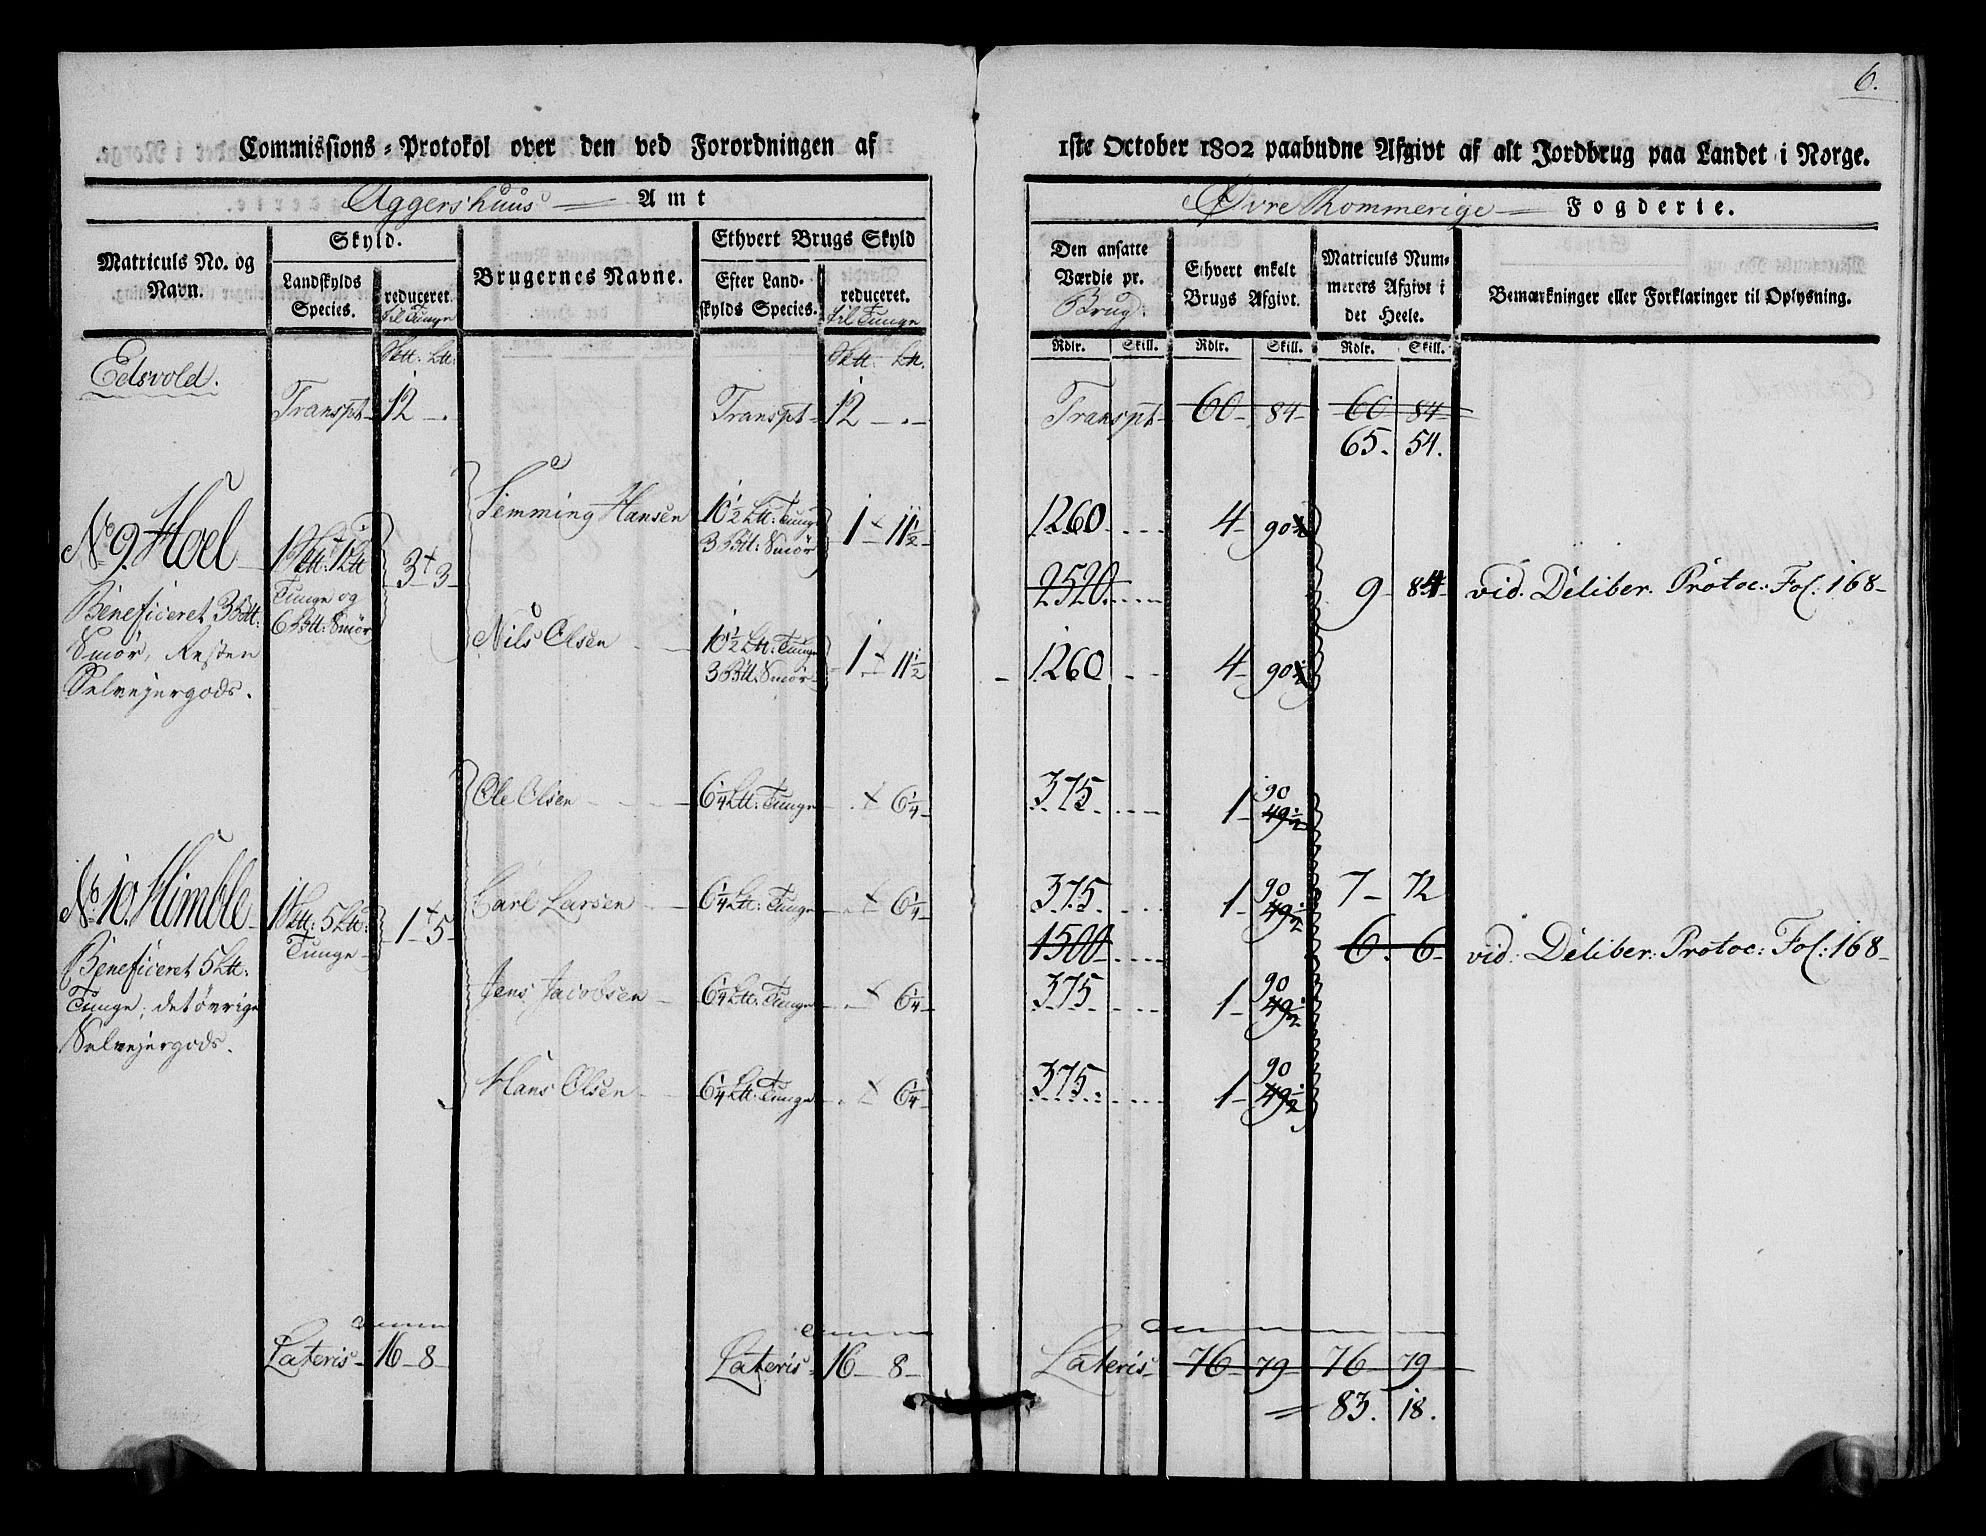 6.
Commissions-Protokol over den ved Forordningen af 1ste October 1802 paabudne Afgivt af alt Jordbrug paa Landet i Norge.
Aggershuus Amt
Øvre Rommerige Fogderie.
Matriculs No. og Navn.
Skyld.
Landskylds Species.
reduceret til Tunge
Brugernes Navne.
Ethvert Brugs Skyld
Efter Landskylds Species.
reduceret. til Tunge
Den ansatte Værdie pr. Brug.
Ethvert enkelt Brugs Afgivt.
Matriculs Nummerets Afgivt i det Heele.
Bemærkninger eller Forklaringer til Oplysning.
Rdlr. Skill. Rdlr. Skill. Rdlr. Skill.
Edsvold.
Transpt 12 - . Transpt 12 - . - Transpt 60 - 84 - 60 84
65. 54.
Semming Hansen 10½ Ltt: Tunge 3 Btt: Smør 1 11½ 1260 4 - 90
No 9. Hoel 1 Sktt: 1 Ltt Tunge og 6 Btt: Smør 3 - 3 2520 9 - 84 vid. Deliber. Protoc: Fol: 168
Beneficeret 3 Btt: Smør, Resten Selveyergods.
Nils Olsen 10½ Ltt: Tunge 3 Btt: Smør 1 11½ 1260 4 - 90
Ole Olsen 6¼ Ltt: Tunge 6¼ 375 1 - 90 49½
No 10. Himble 1 Sktt: 5 Ltt: Tunge 1 - 5
Carl Larsen 6¼ Ltt: Tunge 6¼ 375 1 - 90 49½ 7 - 72
1500 6. 6 vid. Deliber. Protoc: Fol: 168
Beneficeret 5 Ltt: Tunge; det øvrige Selveyergods.
Jens Jacobsen 6¼ Ltt: Tunge 6¼ 375 1 - 90 49½
Hans Olsen 6¼ Ltt: Tunge 6¼ 375. 1 - 90 49½
Lateris 16 - 8 Lateris 16 - 8 Lateris 76 - 79 76 - 79
= 83. 18.